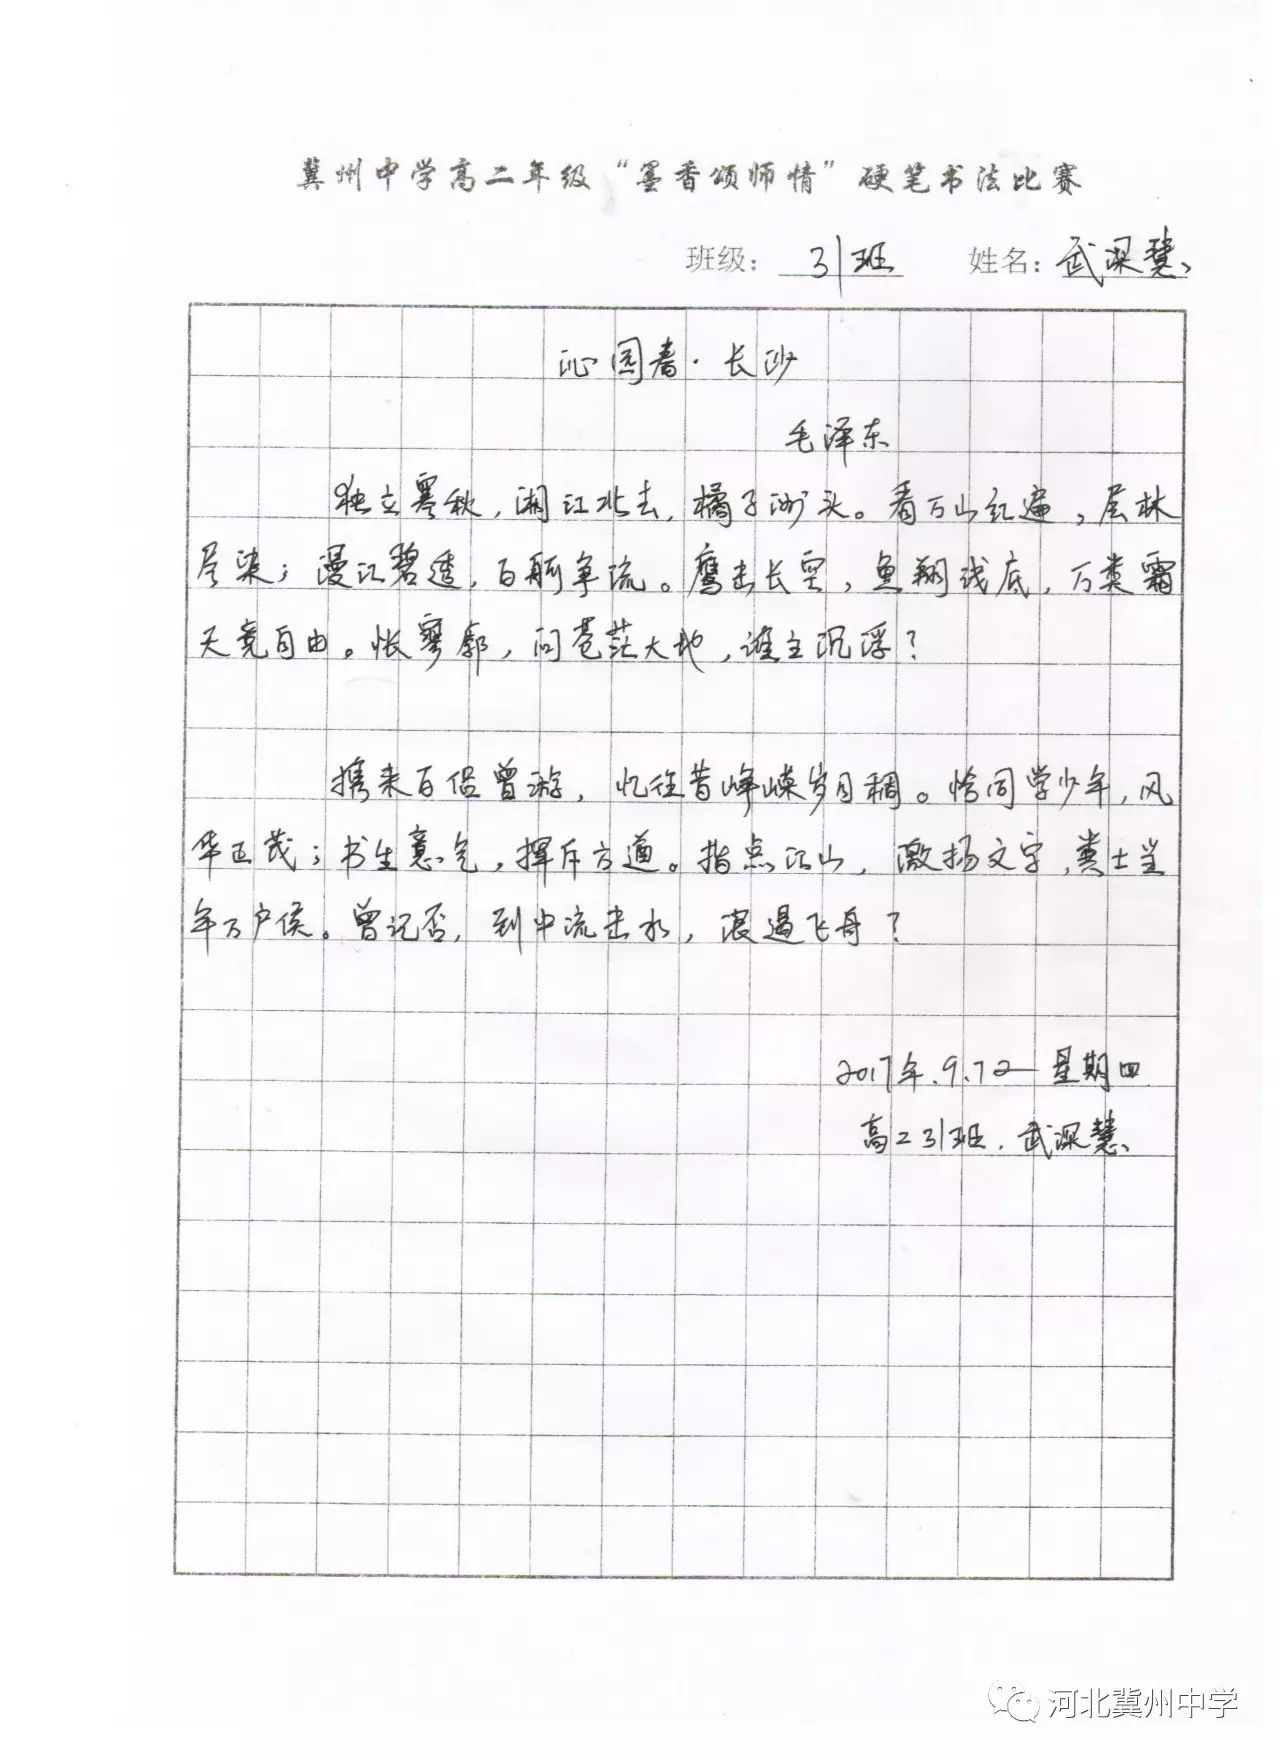 冀州中学高二年级“墨香颂师情”硬笔书法比赛
班级：31班 姓名：武深慧
沁园春·长沙
毛泽东
独立寒秋，湘江北去，橘子洲头。看万山红遍，层林
尽染；漫江碧透，百舸争流。鹰击长空，鱼翔浅底，万类霜
天竞自由。怅寥廓，问苍茫大地，谁主沉浮？
携来百侣曾游，忆往昔峥嵘岁月稠。恰同学少年，风
华正茂；书生意气，挥斥方遒。指点江山，激扬文字，粪土当
年万户侯。曾记否，到中流击水，浪遏飞舟？
2017年.9.12 星期四
高二31班.武深慧
河北冀州中学